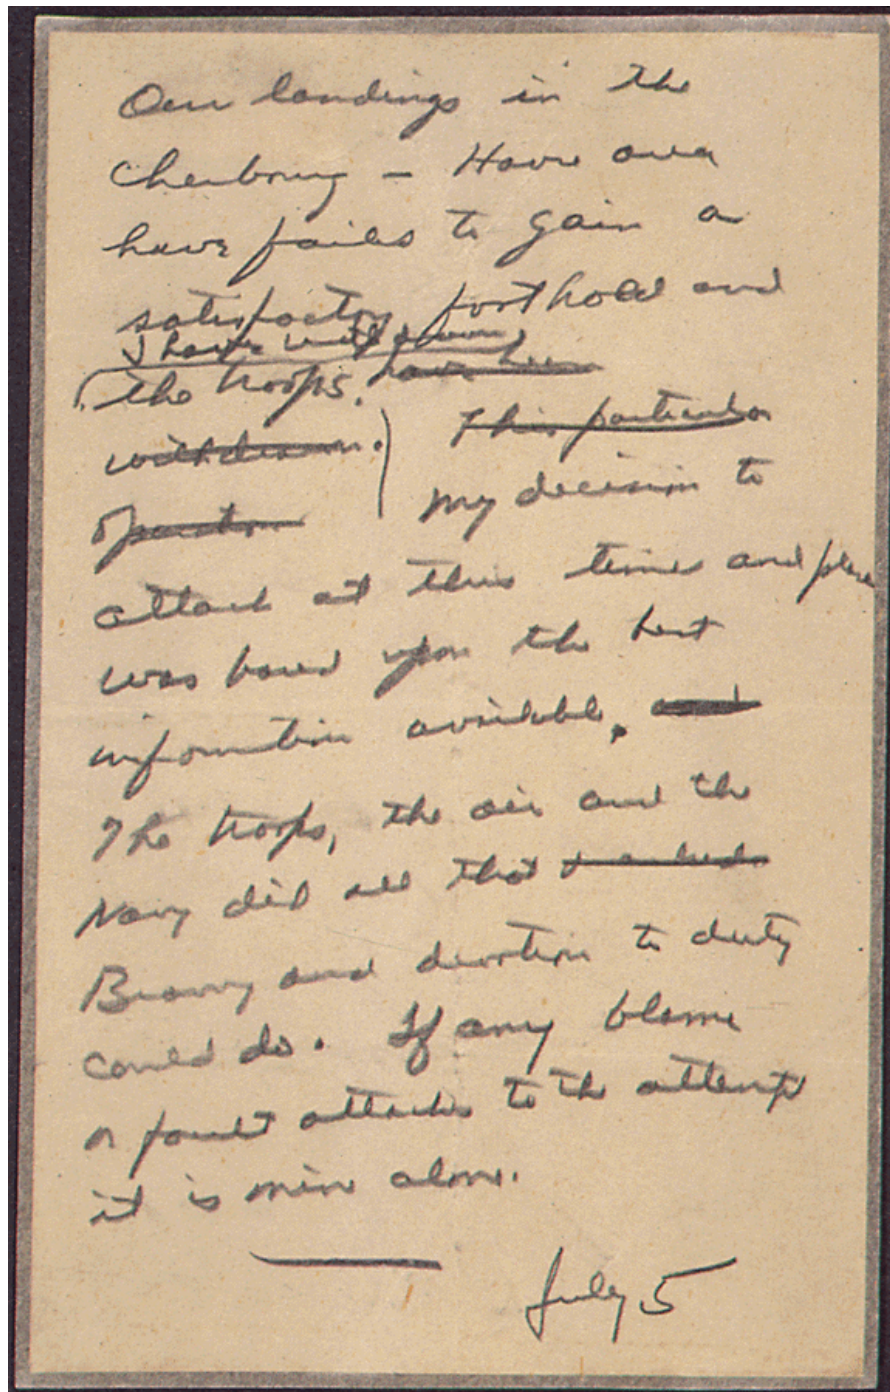 Our landings in the
Cherbourg - Havre area
have failed to gain a
satisfactory foothold and
I have withdrawn
the troops. have been
withdrawn. This particular
operation My decision to
attack at this time and place
was based upon the best
information available. and
The troops, the air and the
Navy did all that
Bravery and devotion to duty
could do. If any blame
or fault attaches to the attempt
it is mine alone.
July 5